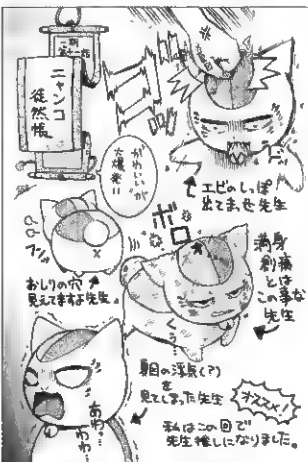 ニャンコ
徒然帳
かわいいが
大爆発!!
エビのしっぽ
出てませ先生
フンッ
おしりの穴
見えてますよ先生。
ボロ
満身
創痍
とは
この事だ
先生
くっ…
あわっ…
わわ…
夏目の浮気(?)
を
見てしまった先生
オススメ!
私はこの回で
先生推しになりました。